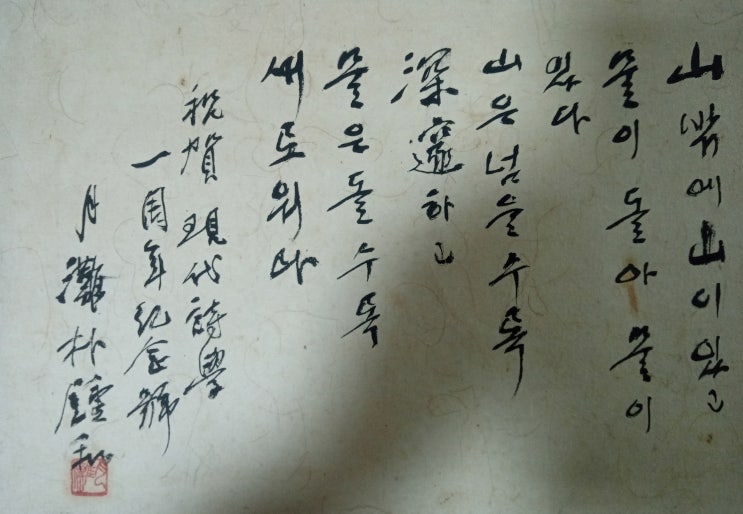 山밖에山이있고
물이 돌아 물이
있다
山은넘을수록
深邃하고
물은돌수록
새로워라
祝賀 現代詩學
一周年紀念號
月灘 朴鍾和